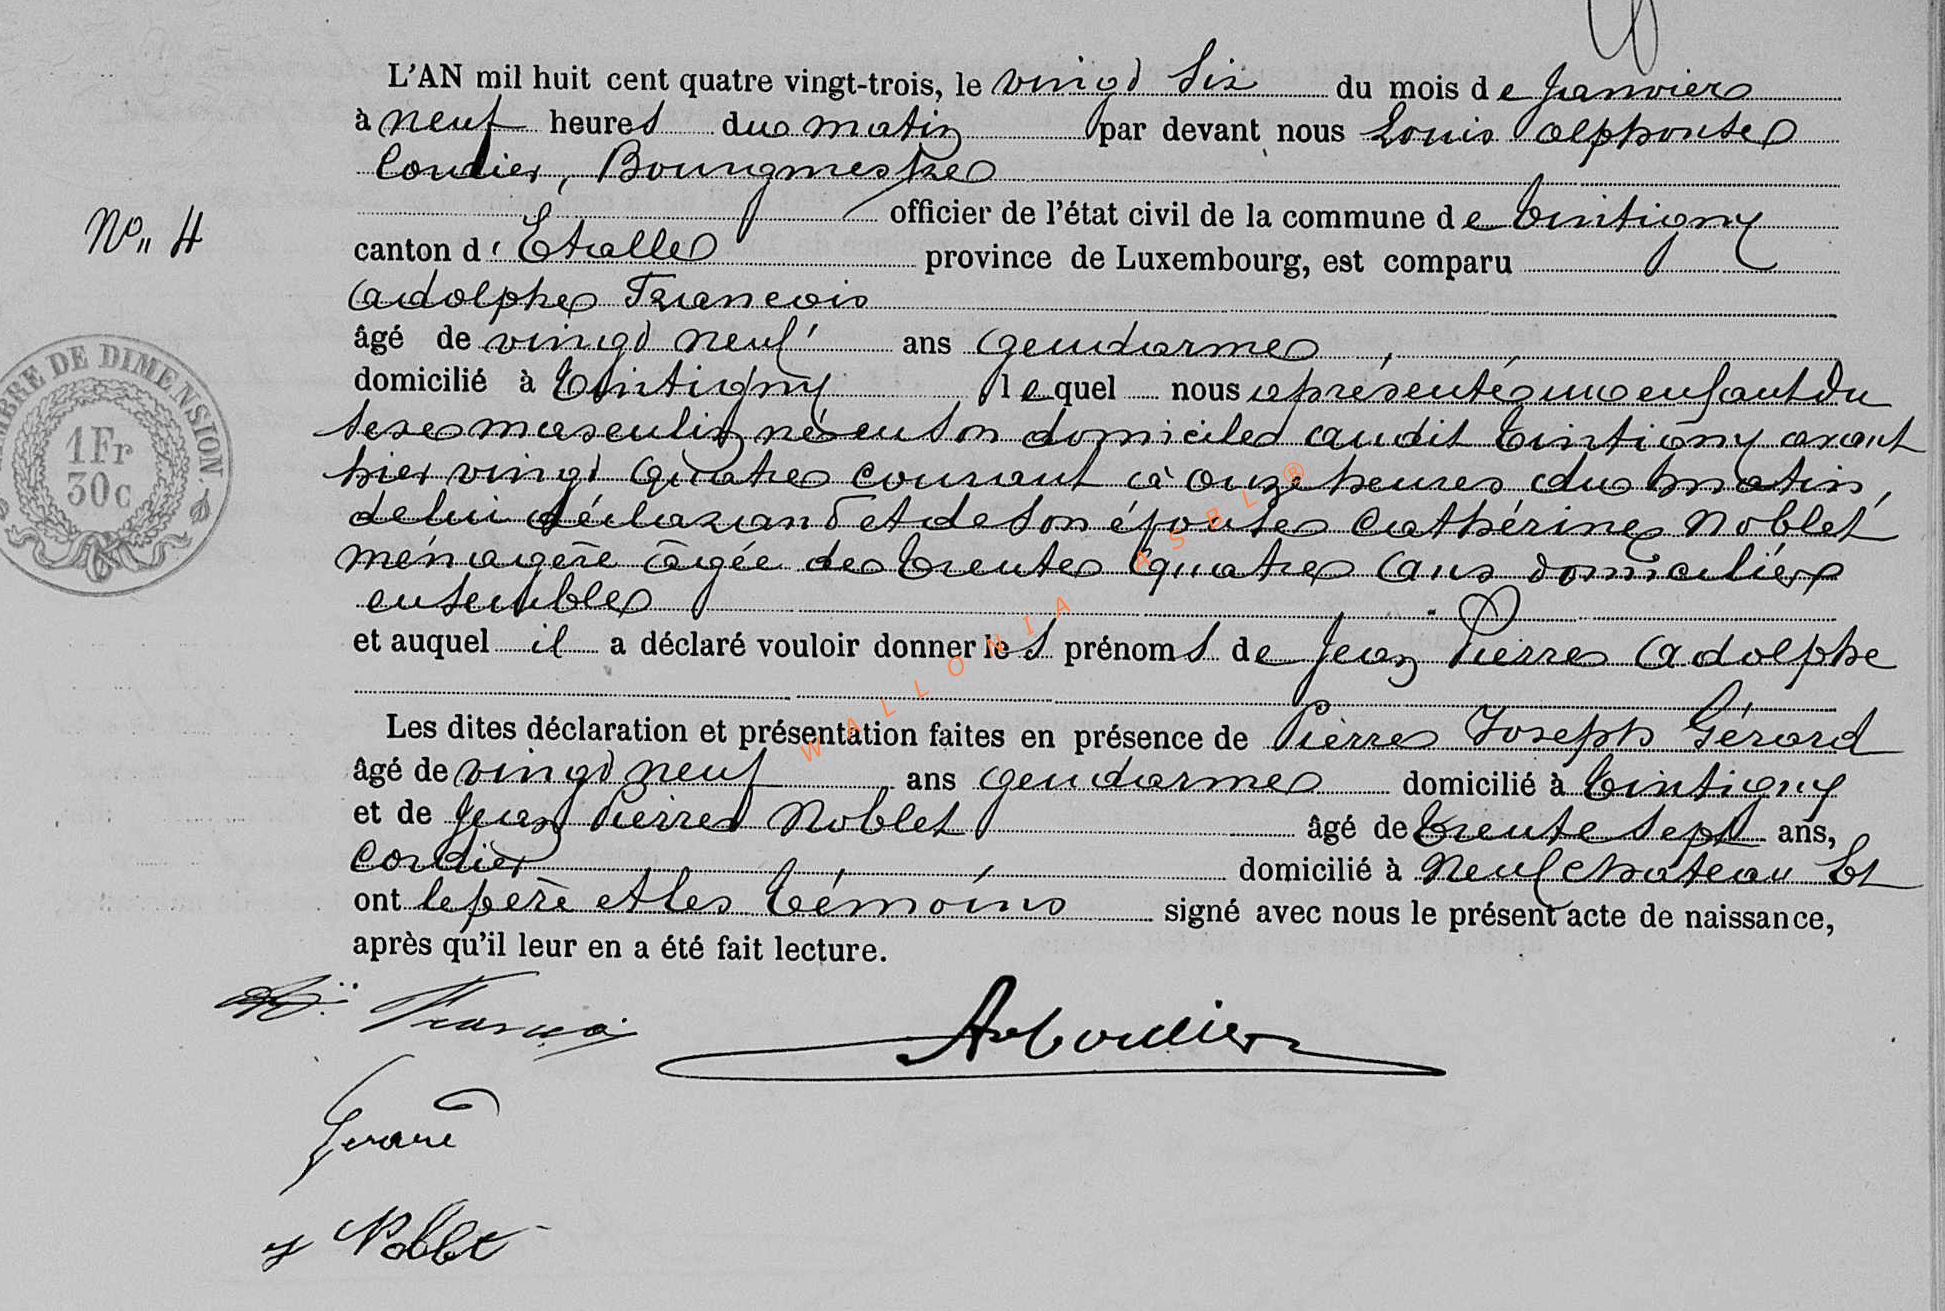 L'AN mil huit cent quatre vingt-trois, le vingt six du mois de Janvier
à neuf heures du matin par devant nous Louis alphonse
Cordier, Bourgmestre
officier de l'état civil de la commune de Tintigny
No 4
canton d'Etalle province de Luxembourg, est comparu
Adolphe Francois
âgé de vingt neuf ans gendarme,
domicilié à Tintigny lequel nous a présenté un enfant du
sexe masculin né en son domicile audit Tintigny avant
hier vingt quatre courant à onze heures du matin,
de lui déclarant et de son épouse Cathérine Noblet
ménagère âgée de trente quatre ans domiciliés
ensemble
et auquel il a déclaré vouloir donner les prénoms de Jean Pierre Adolphe
Les dites déclaration et présentation faites en présence de Pierre Joseph Gérard
âgé de vingt neuf ans gendarme domicilié à Tintigny
et de Jean Pierre Noblet âgé de trente sept ans,
Cordier domicilié à Neufchateau Et
ont le père et les témoins signé avec nous le présent acte de naissance,
après qu'il leur en a été fait lecture.
Francois
A Cordier
Gerard
J Noblet
TIMBRE DE DIMENSION.
1 Fr
30 c
WALLONIA ASBL ®